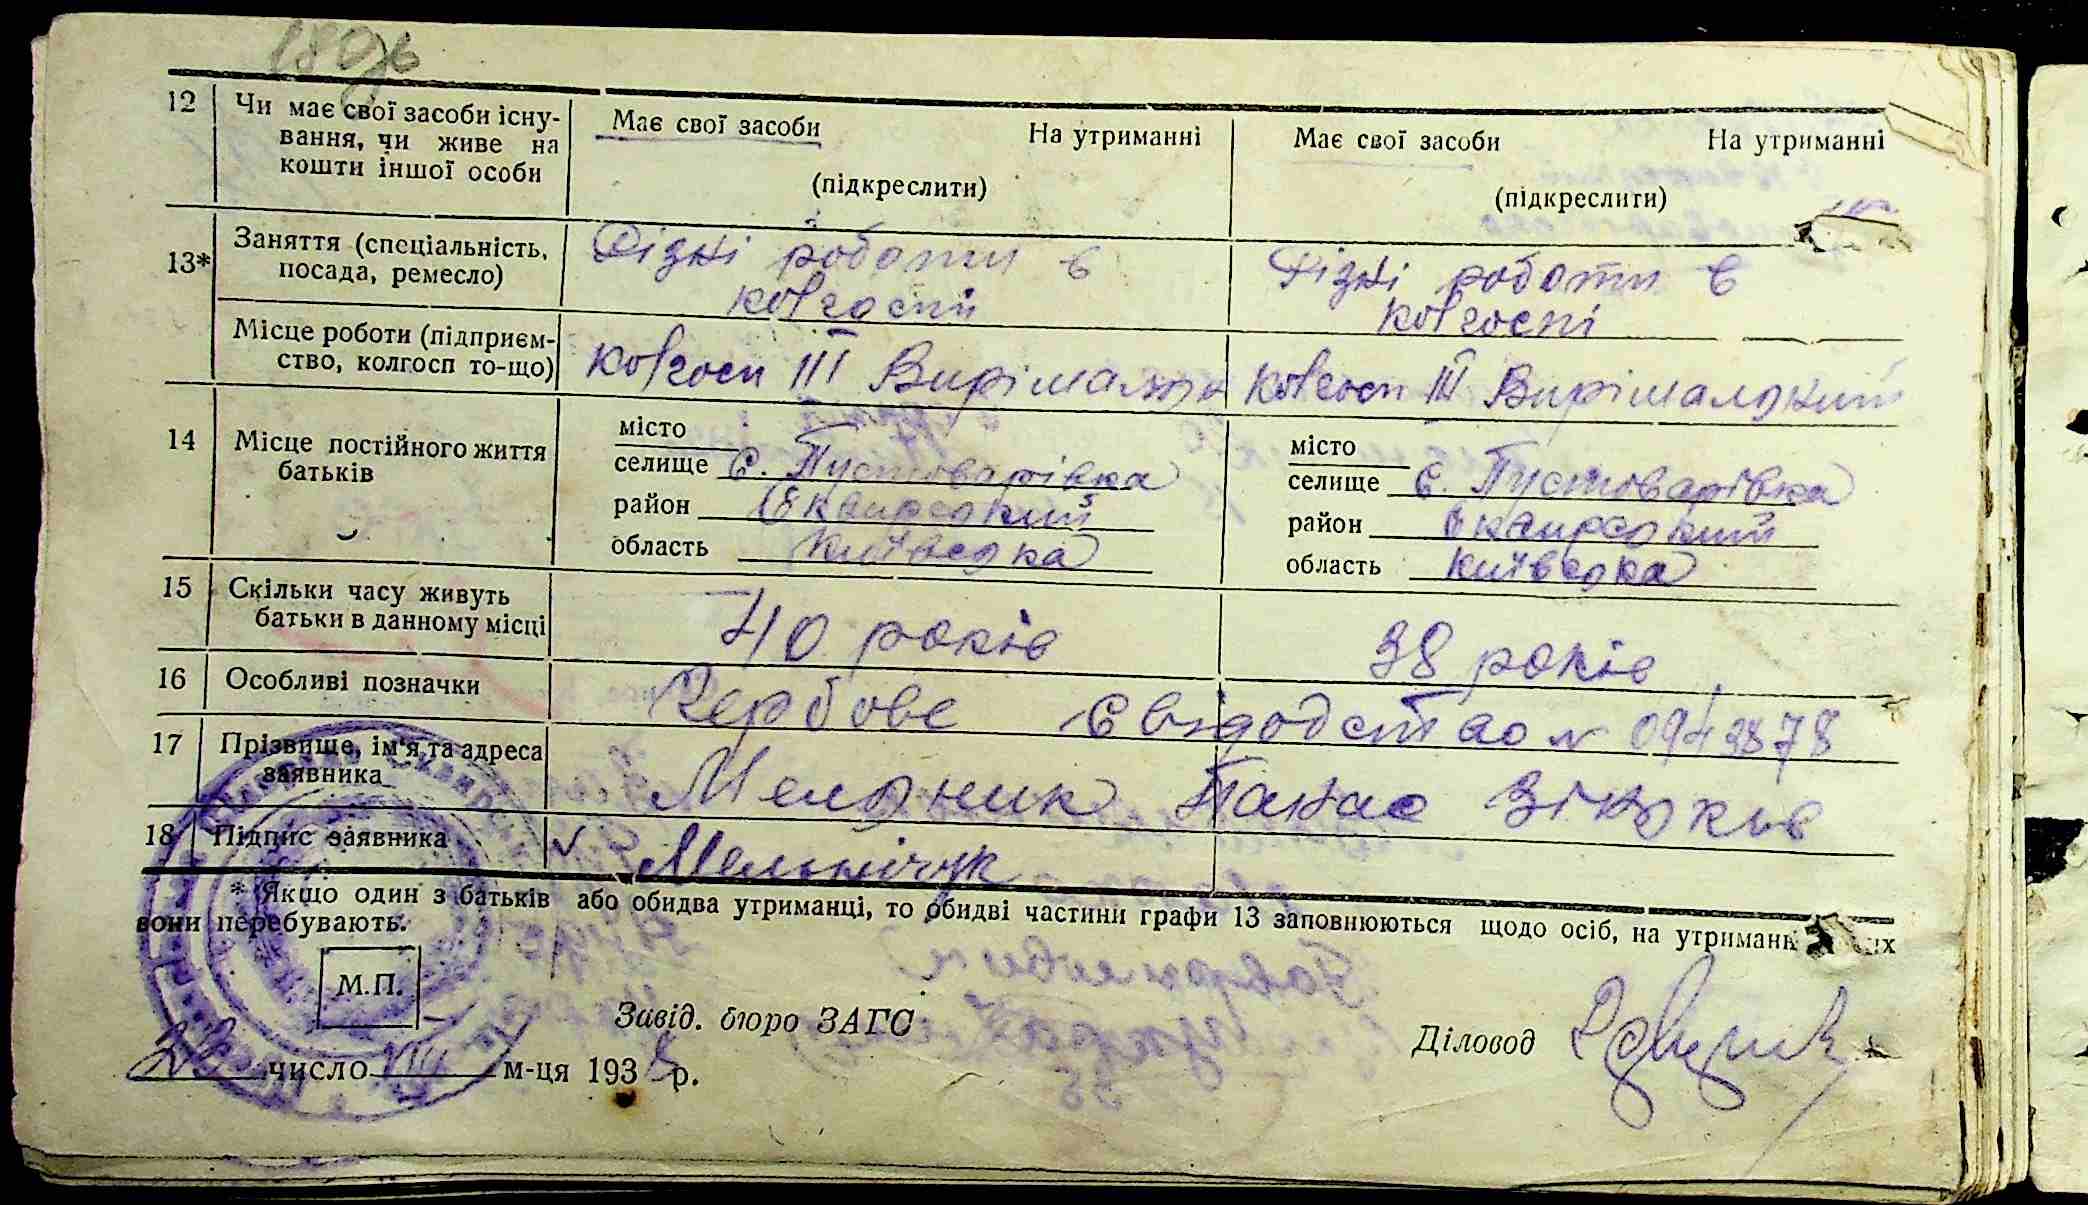 180зв
12 Чи має свої засоби існу-
вання, чи живе на
кошти іншої особи
Має свої засоби На утриманні
(підкреслити)
Має свої засоби На утриманні
(підкреслити)
13* Заняття (спеціальність,
посада, ремесло)
Різні роботи в
колгоспі
Різні роботи в
колгоспі
Місце роботи (підприєм-
ство, колгосп то-що)
колгосп III Вирішальн
колгосп III Вирішальний
14 Місце постійного життя
батьків
місто
селище С. Пустоварівка
район Сквирський
область Київська
місто
селище С. Пустоварівка
район Сквирський
область Київська
15 Скільки часу живуть
батьки в данному місці
40 років
38 років
16 Особливі позначки
Гербове Свідодство N 0942878
17 Прізвище, ім'я та адреса
заявника
Мельник Панас
18 Підпис заявника
v Мельнічук
* Якщо один з батьків або обидва утриманці, то обидві частини графи 13 заповнюються щодо осіб, на утриманн
вони перебувають.
М.П.
Завід. бюро ЗАГС
Діловод
23 число VIII м-ця 193 р.